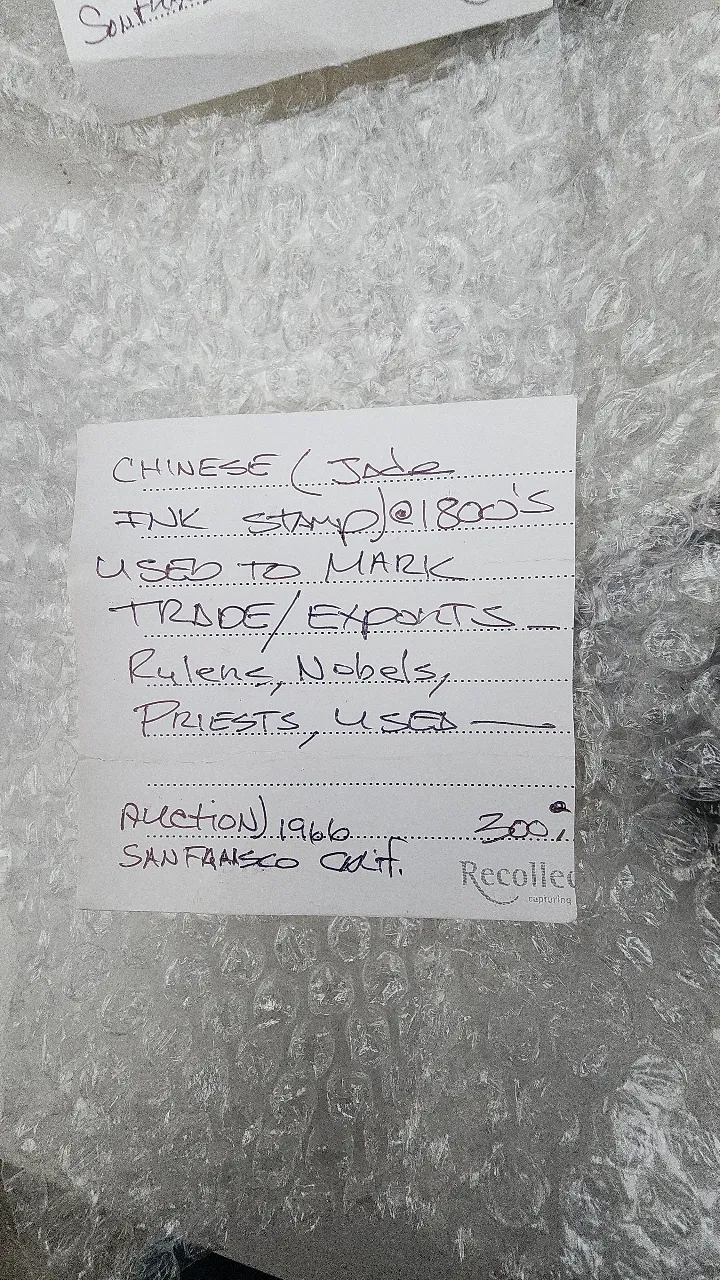 CHINESE (Jade
INK STAMP) @ 1800's
USED TO MARK
TRADE/EXPORTS
Rulers, Nobels,
PRIESTS, USED
AUCTION) 1966 300
SANFRANSCO Calif.
Recollec
capturing